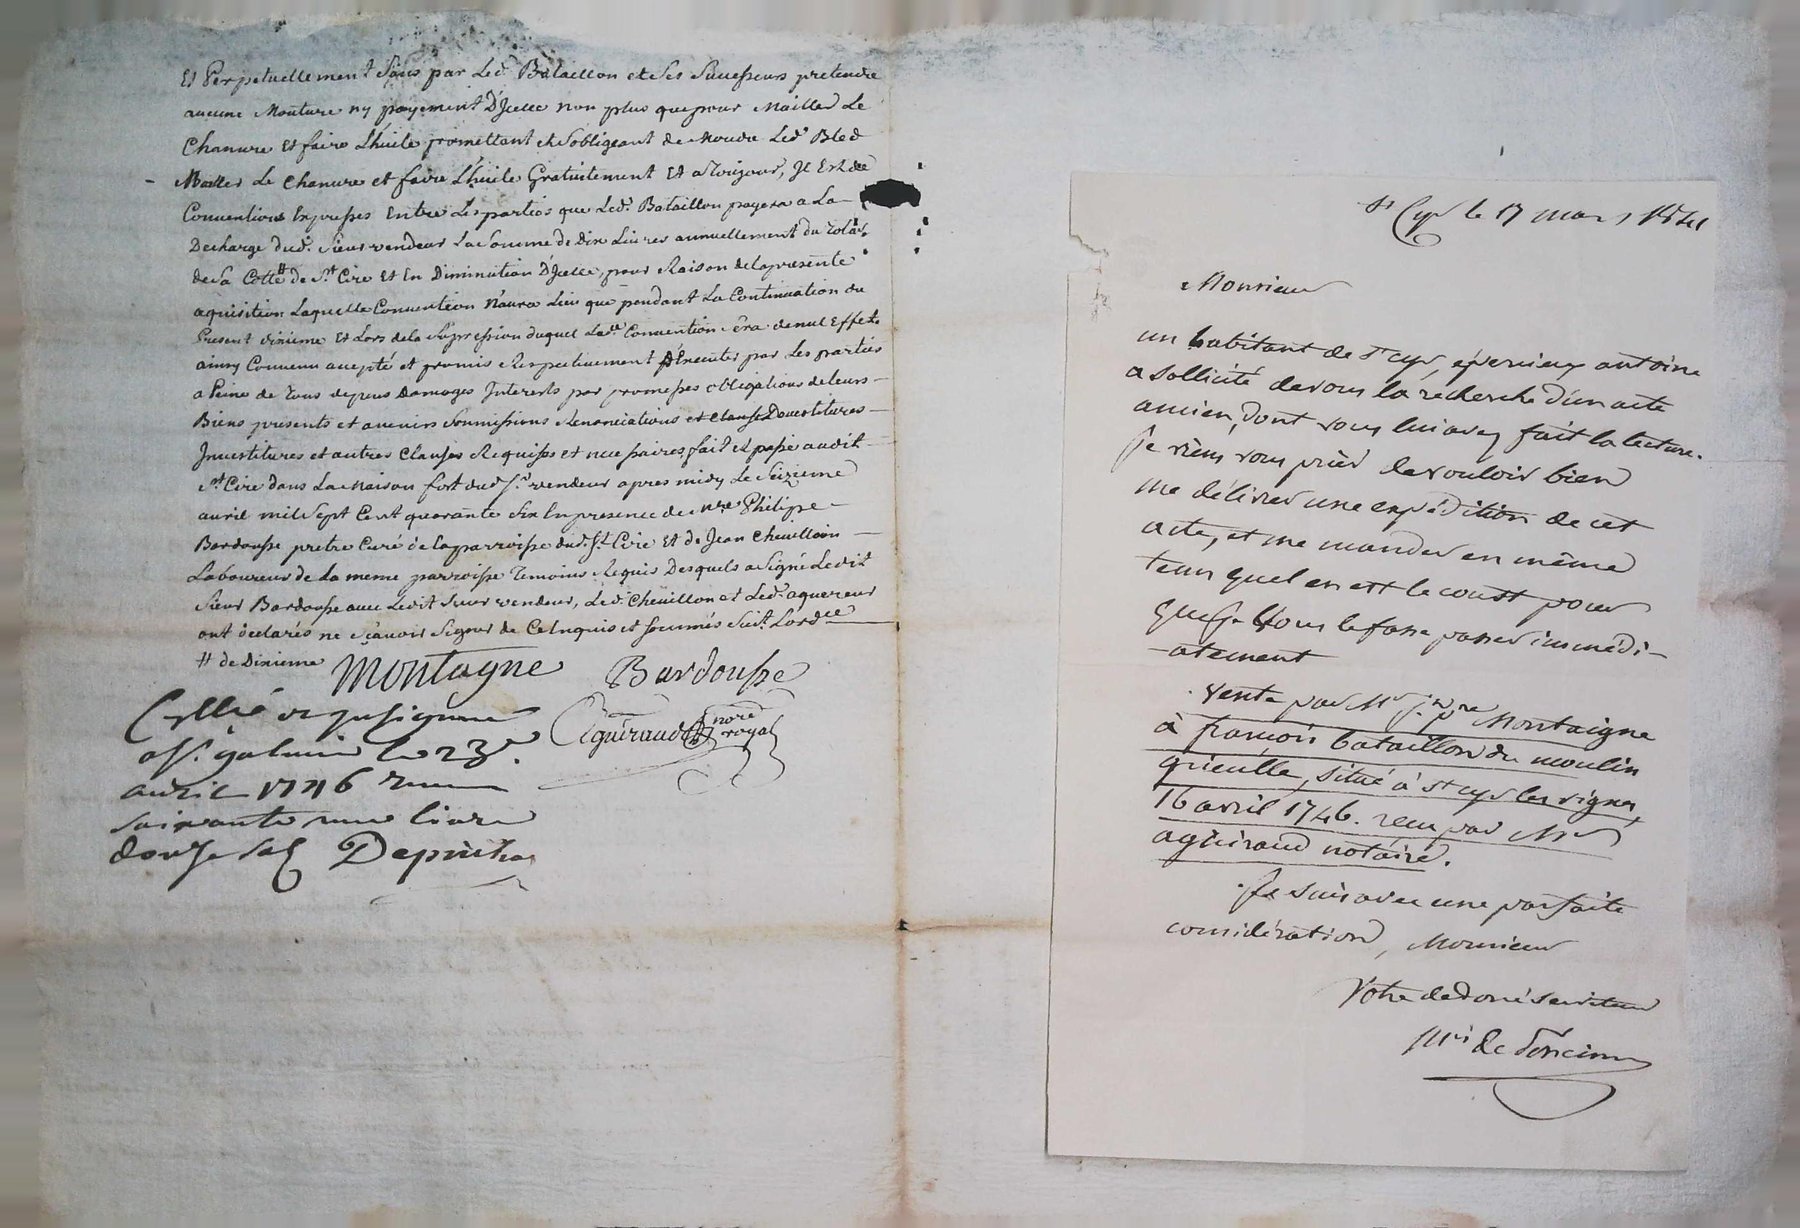 Et Perpetuellement Sans par Led. Bataillon et Ses Successeurs pretendre
aucune Mouture ny payement D'Jcelle non plus que pour Mailler Le
Chanvre Et faire L'huile promettant et S'obligeant de Moudre Led. Bled
Mailler Le Chanvre et faire L'huile Gratuitement Et a Toujour, Il Est de
Conventions Expresses Entre Les parties que Led. Bataillon payera a La
Decharge dud. Sieur vendeur La Somme de Dix Livres annuellement du
de Sa Cotte # de St. Cire Et En Diminution D'Jcelle, pour Raison de la presente
aquisition Laquelle Convention N'aura Lieu que pendant La Continuation du
Present dixieme Et Lors de la Supression duquel Lade. Convention Sera de nul Effet
ainsy Convenu accepté et promis Respectivement D'Executer par Les parties
a Peine de Tous depens Damages Interests par promesses obligations de leurs
Biens presents et avenirs Soumissions Renonciations et clauses Devestitures
Investitures et autres Clauses Requises et necessaires fait et passé audit
St. Cire dans La Maison fort dud. Sr. vendeur apres midy Le Seizieme
avril mil Sept Cent quarante Six En presence de Mre Philipe
Bardousse pretre Curé de la parroisse dud. St. Cire Et de Jean Cheuillon
Laboureur de La meme parroisse Temoins Requis Desquels a Signé Ledit
Sieur Bardousse avec Ledit Sieur vendeur, Led. Cheuillon et Led. aquereur
ont declarés ne Sçavoir Signer de Ce Enquis et Sommés Suit. Lordce
# de Dixieme Montagne Bardousse
Aguiraud nore royal
galmier le 23e.
avril 1746
soixante une livre
douze sols Depinhac
St Cyr le 17 mars 1841
Monsieur
un habitant de St cyr, épernieux antoine
a sollicité de vous la recherche d'un acte
ancien, dont vous lui avez fait la lecture.
Je viens vous prier de vouloir bien
me délivrer une expédition de cet
acte, et me mander en même
tems quel en est le coust pour
que je vous le fasse passer immédi-
-atement
Vente par Mr j.n p.re Montaigne
à françois bataillon du moulin
grieulle, situé à St cyr les vignes,
16 avril 1746. recu par Mr
aguiraud notaire.
Je suis avec une parfaite
considération, Monsieur
Votre dévoué serviteur
Mis de Poncins